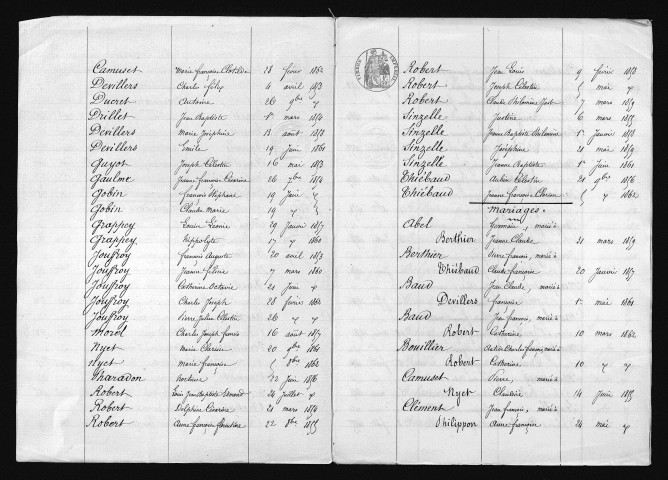 Camuset Marie françoise Clotilde 28 févier 1862
Devillers Charles félix 4 avril 1853
Ducret Antoine 26 9bre "
Drillet Jean Baptiste 1er mars 1854
Devillers Marie Joséphine 13 août 1858
Devillers Emile 19 juin 1861
Guyot Joseph Célestin 16 mai 1853
Gaulme Jeanne françoise Césarine 26 7bre 1854
Gobin françois Stéphane 19 Juin "
Gobin Claude Marie 19 " "
Grappey Louise Léonie 29 Janvier 1857
Grappey Hippolyte 17 " 1860
Jouffroy françois Auguste 20 avril 1853
Jouffroy Jeanne feline 7 mars 1860
Jouffroy Catherine Octavie 21 Juin "
Jouffroy Charles Joseph 28 février 1862
Jouffroy Pierre Julien Célestin 26 "
Morel Charles Joseph 16 août 1857
Nyet Marie Clarisse 20 1861
Nyet Marie françoise 5 1862
Pharadon 22 Juin 1856
Robert Louis Jean Baptiste 24 Juillet "
Robert Delphine Césarine 21 mars 1854
Robert Anne françoise 22 8bre 1855
Robert Jean Louis 9 février 1858
Robert Joseph Célestin 5 mai "
Robert Claude Philomène 7 mars 1859
Sinzelle Justine 6 mars 1855
Sinzelle Jeanne Baptiste Philomène 1er Janvier 1858
Sinzelle Joséphine 21 mai 1859
Sinzelle Jeanne Baptiste 1er Juin 1861
Thiébaud Célestin 21 9bre 1856
Thiébaud Jeanne françoise 5 " 1862
Mariages.
Abel Germain, marié à
Berthier Jeanne Claude 21 mars 1859
Berthier Pierre françois, marié à
Thiébaud Claude françoise 20 Janvier 1857
Baud Jean Claude, marié à
Devillers françoise 1er mai 1861
Baud Jean françois, marié à
Robert Catherine 10 mars 1862
Bouillier Charles françois, marié à
Robert Catherine 10 " "
Camuset Pierre, marié à
Nyet Claudine 14 Juin 1855
Clément Jean françois, marié à
Philippon Anne françoise 24 mai "